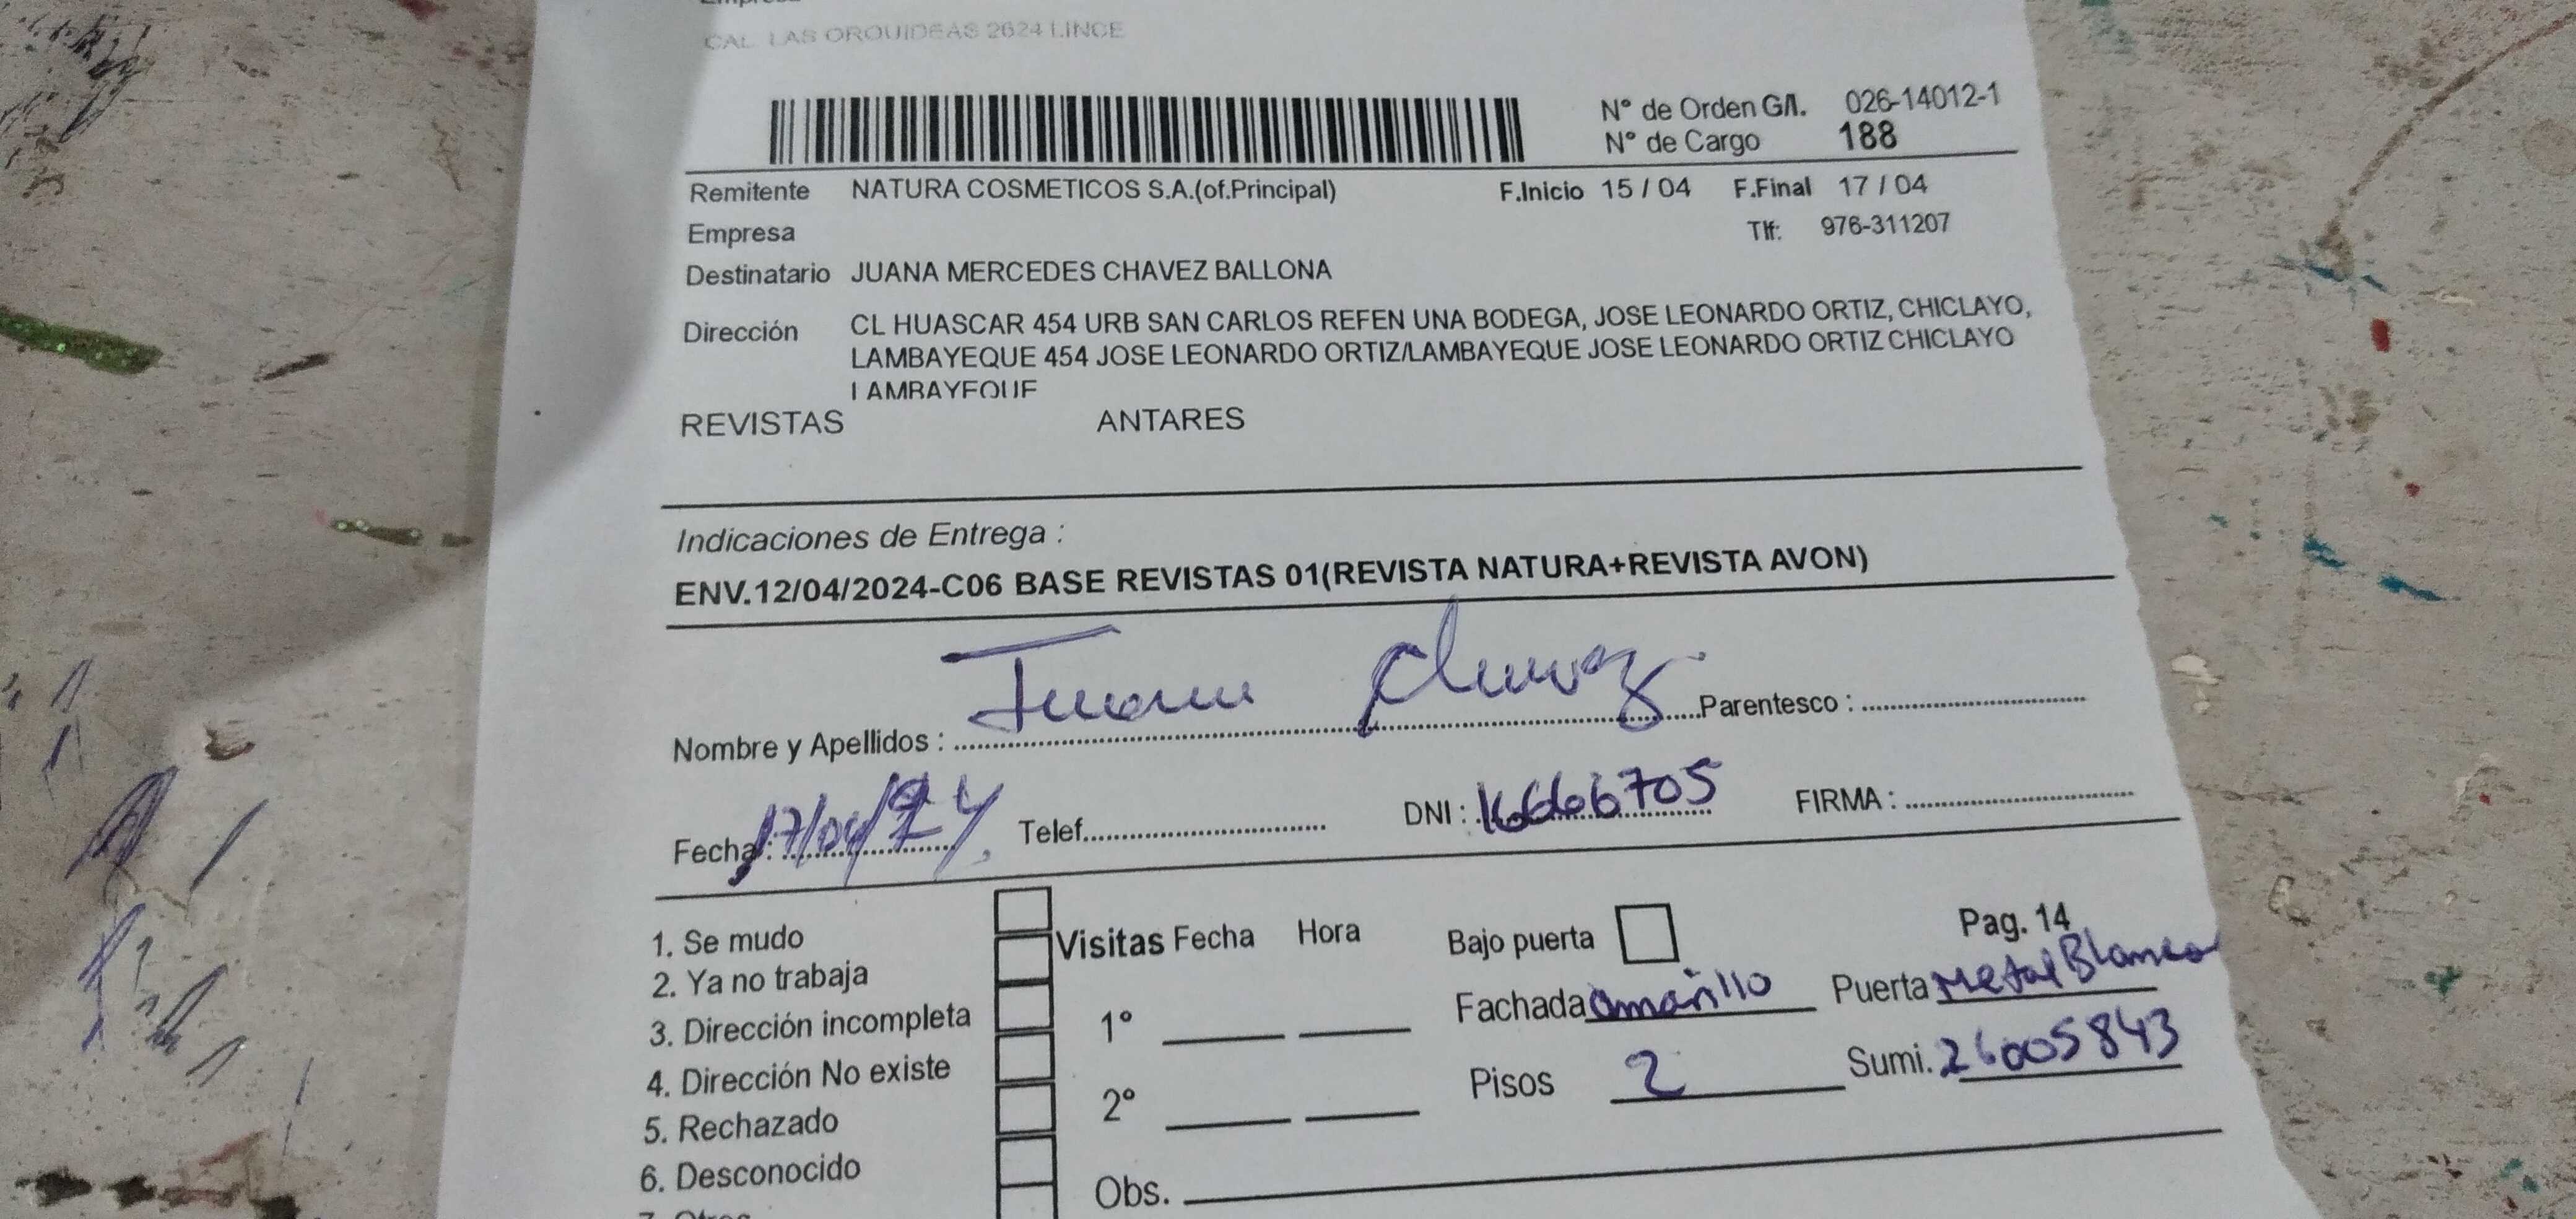 CAL LAS ORQUIDEAS 2624 LINCE
N° de Orden G/I. 026-14012-1
N° de Cargo 188
Remitente NATURA COSMETICOS S.A.(of.Principal) F.Inicio 15 / 04 F.Final 17 / 04
Empresa Tlf: 976-311207
Destinatario JUANA MERCEDES CHAVEZ BALLONA
Dirección CL HUASCAR 454 URB SAN CARLOS REFEN UNA BODEGA, JOSE LEONARDO ORTIZ, CHICLAYO,
LAMBAYEQUE 454 JOSE LEONARDO ORTIZ/LAMBAYEQUE JOSE LEONARDO ORTIZ CHICLAYO
LAMBAYEQUE
REVISTAS ANTARES
Indicaciones de Entrega :
ENV.12/04/2024-C06 BASE REVISTAS 01(REVISTA NATURA+REVISTA AVON)
Nombre y Apellidos : Juana Chavez Parentesco :
Fecha : 17/04/24 Telef. DNI : 16666705 FIRMA :
1. Se mudo
2. Ya no trabaja
3. Dirección incompleta
4. Dirección No existe
5. Rechazado
6. Desconocido
7. Otros
Visitas Fecha Hora
1°
2°
Bajo puerta Pag. 14
Fachada amarillo Puerta Metal Blanco
Pisos 2 Sumi. 26005843
Obs.